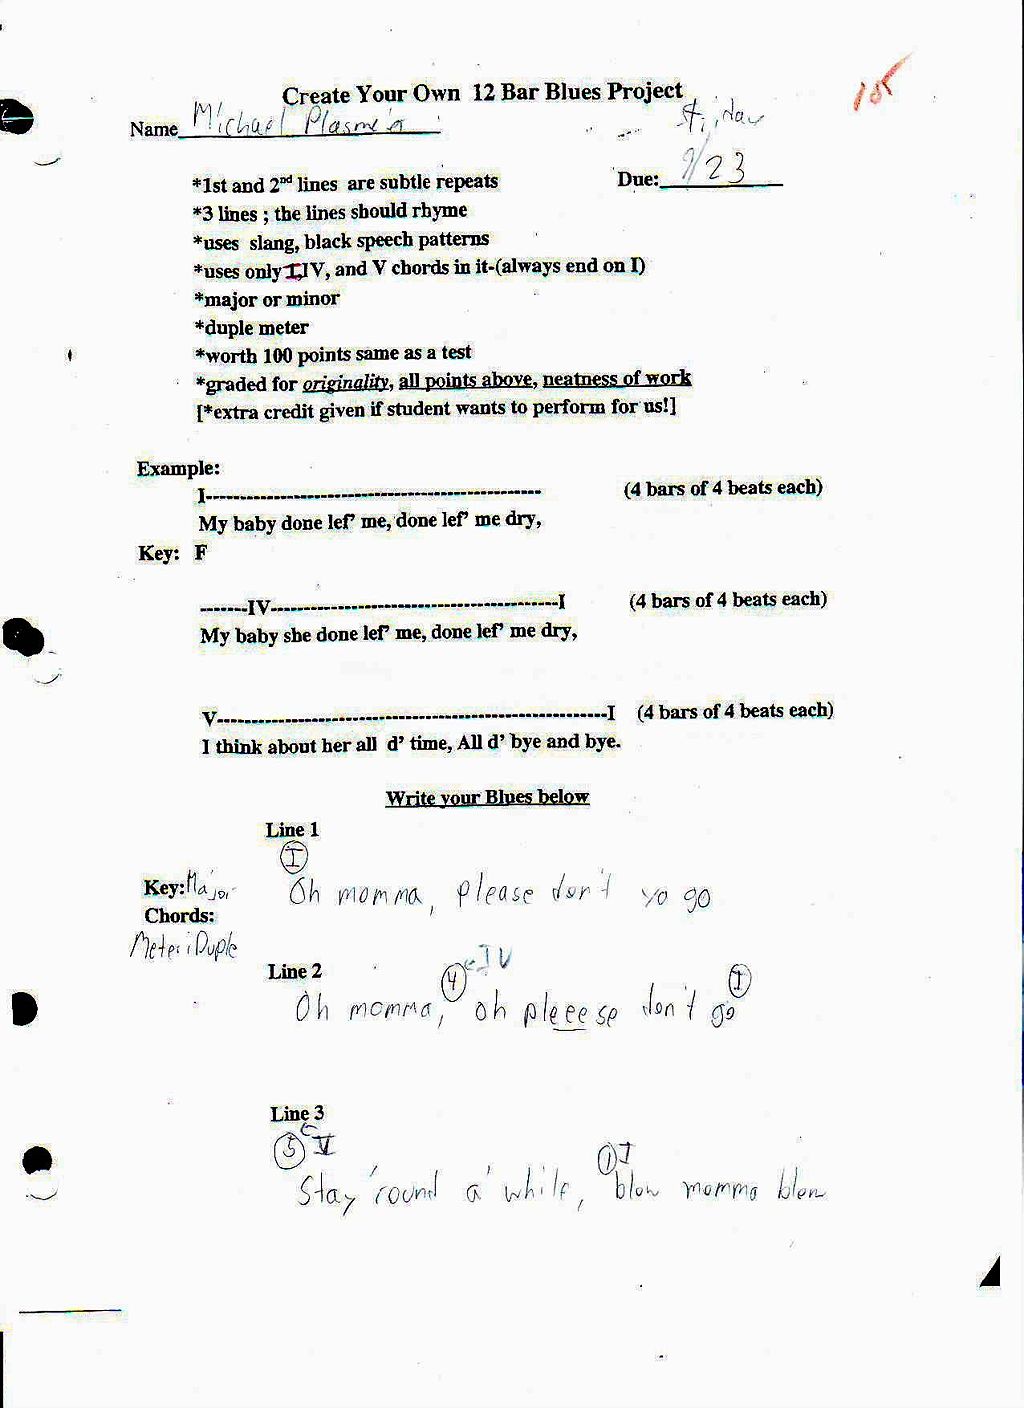 Create Your Own 12 Bar Blues Project
Name Michael
Due: 9/23
*1st and 2nd lines are subtle repeats
*3 lines ; the lines should rhyme
*uses slang, black speech patterns
*uses only I, IV, and V chords in it-(always end on I)
*major or minor
*duple meter
*worth 100 points same as a test
*graded for originality, all points above, neatness of work
[*extra credit given if student wants to perform for us!]
Example:
I------------------------------------------------- (4 bars of 4 beats each)
My baby done lef' me, done lef' me dry,
Key: F
-------IV------------------------------------------I (4 bars of 4 beats each)
My baby she done lef' me, done lef' me dry,
V---------------------------------------------------------I (4 bars of 4 beats each)
I think about her all d' time, All d' bye and bye.
Write your Blues below
Line 1
I
Key: Major
Oh momma, please don't yo go
Chords:
Meter: Duple
Line 2
4 IV I
Oh momma, oh pleeese don't go
Line 3
5 V 1 I
Stay 'round a' while, blow momma blow